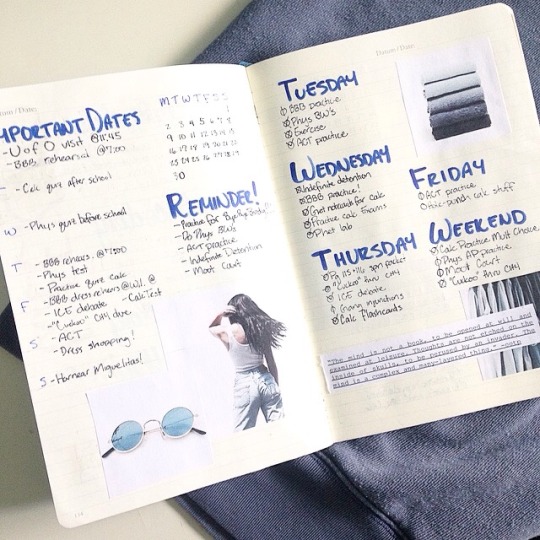 IMPORTANT DATES
-U of O visit @11:45
-BBB rehearsal @7:00
- Calc quiz after school
W -Phys quiz before school
T -BBB rehears. @7:00
-Phys test
-Practice quiz calc
F -BBB dress rehears
-ICE debate -CalcTest
-"Cuckoo" CH4 due
S -ACT
-Dress shopping!
S -Hornear Miguelitas!
M T W T F S S
1
2 3 4 5 6 7 8
9 10 11 12 13 14 15
16 17 18 19 20 21 22
REMINDER!
-Practice for
-Do Phys BW's
-ACT practice
-Indefinite Detention
-Moot Court
TUESDAY
BBB practice
Phys BW's
Exercise
ACT practice
WEDNESDAY
Indefinite detention
BBB practice!
Get notecards for calc
Practice calc Exams
Pnet lab
THURSDAY
"Cuckoo" thru CH4
ICE debate
Going injunctions
Calc flashcards
FRIDAY
ACT practice
calc stuff
WEEKEND
Calc Practice Mult Choice
Phys AP practice
Moot Court
"Cuckoo" thru CH4
"The mind is not a book, to be opened at will and
examined at leisure. Thoughts are not etched on the
inside of skulls, to be perused by an invader. The
mind is a complex and many-layered thing." -ootp